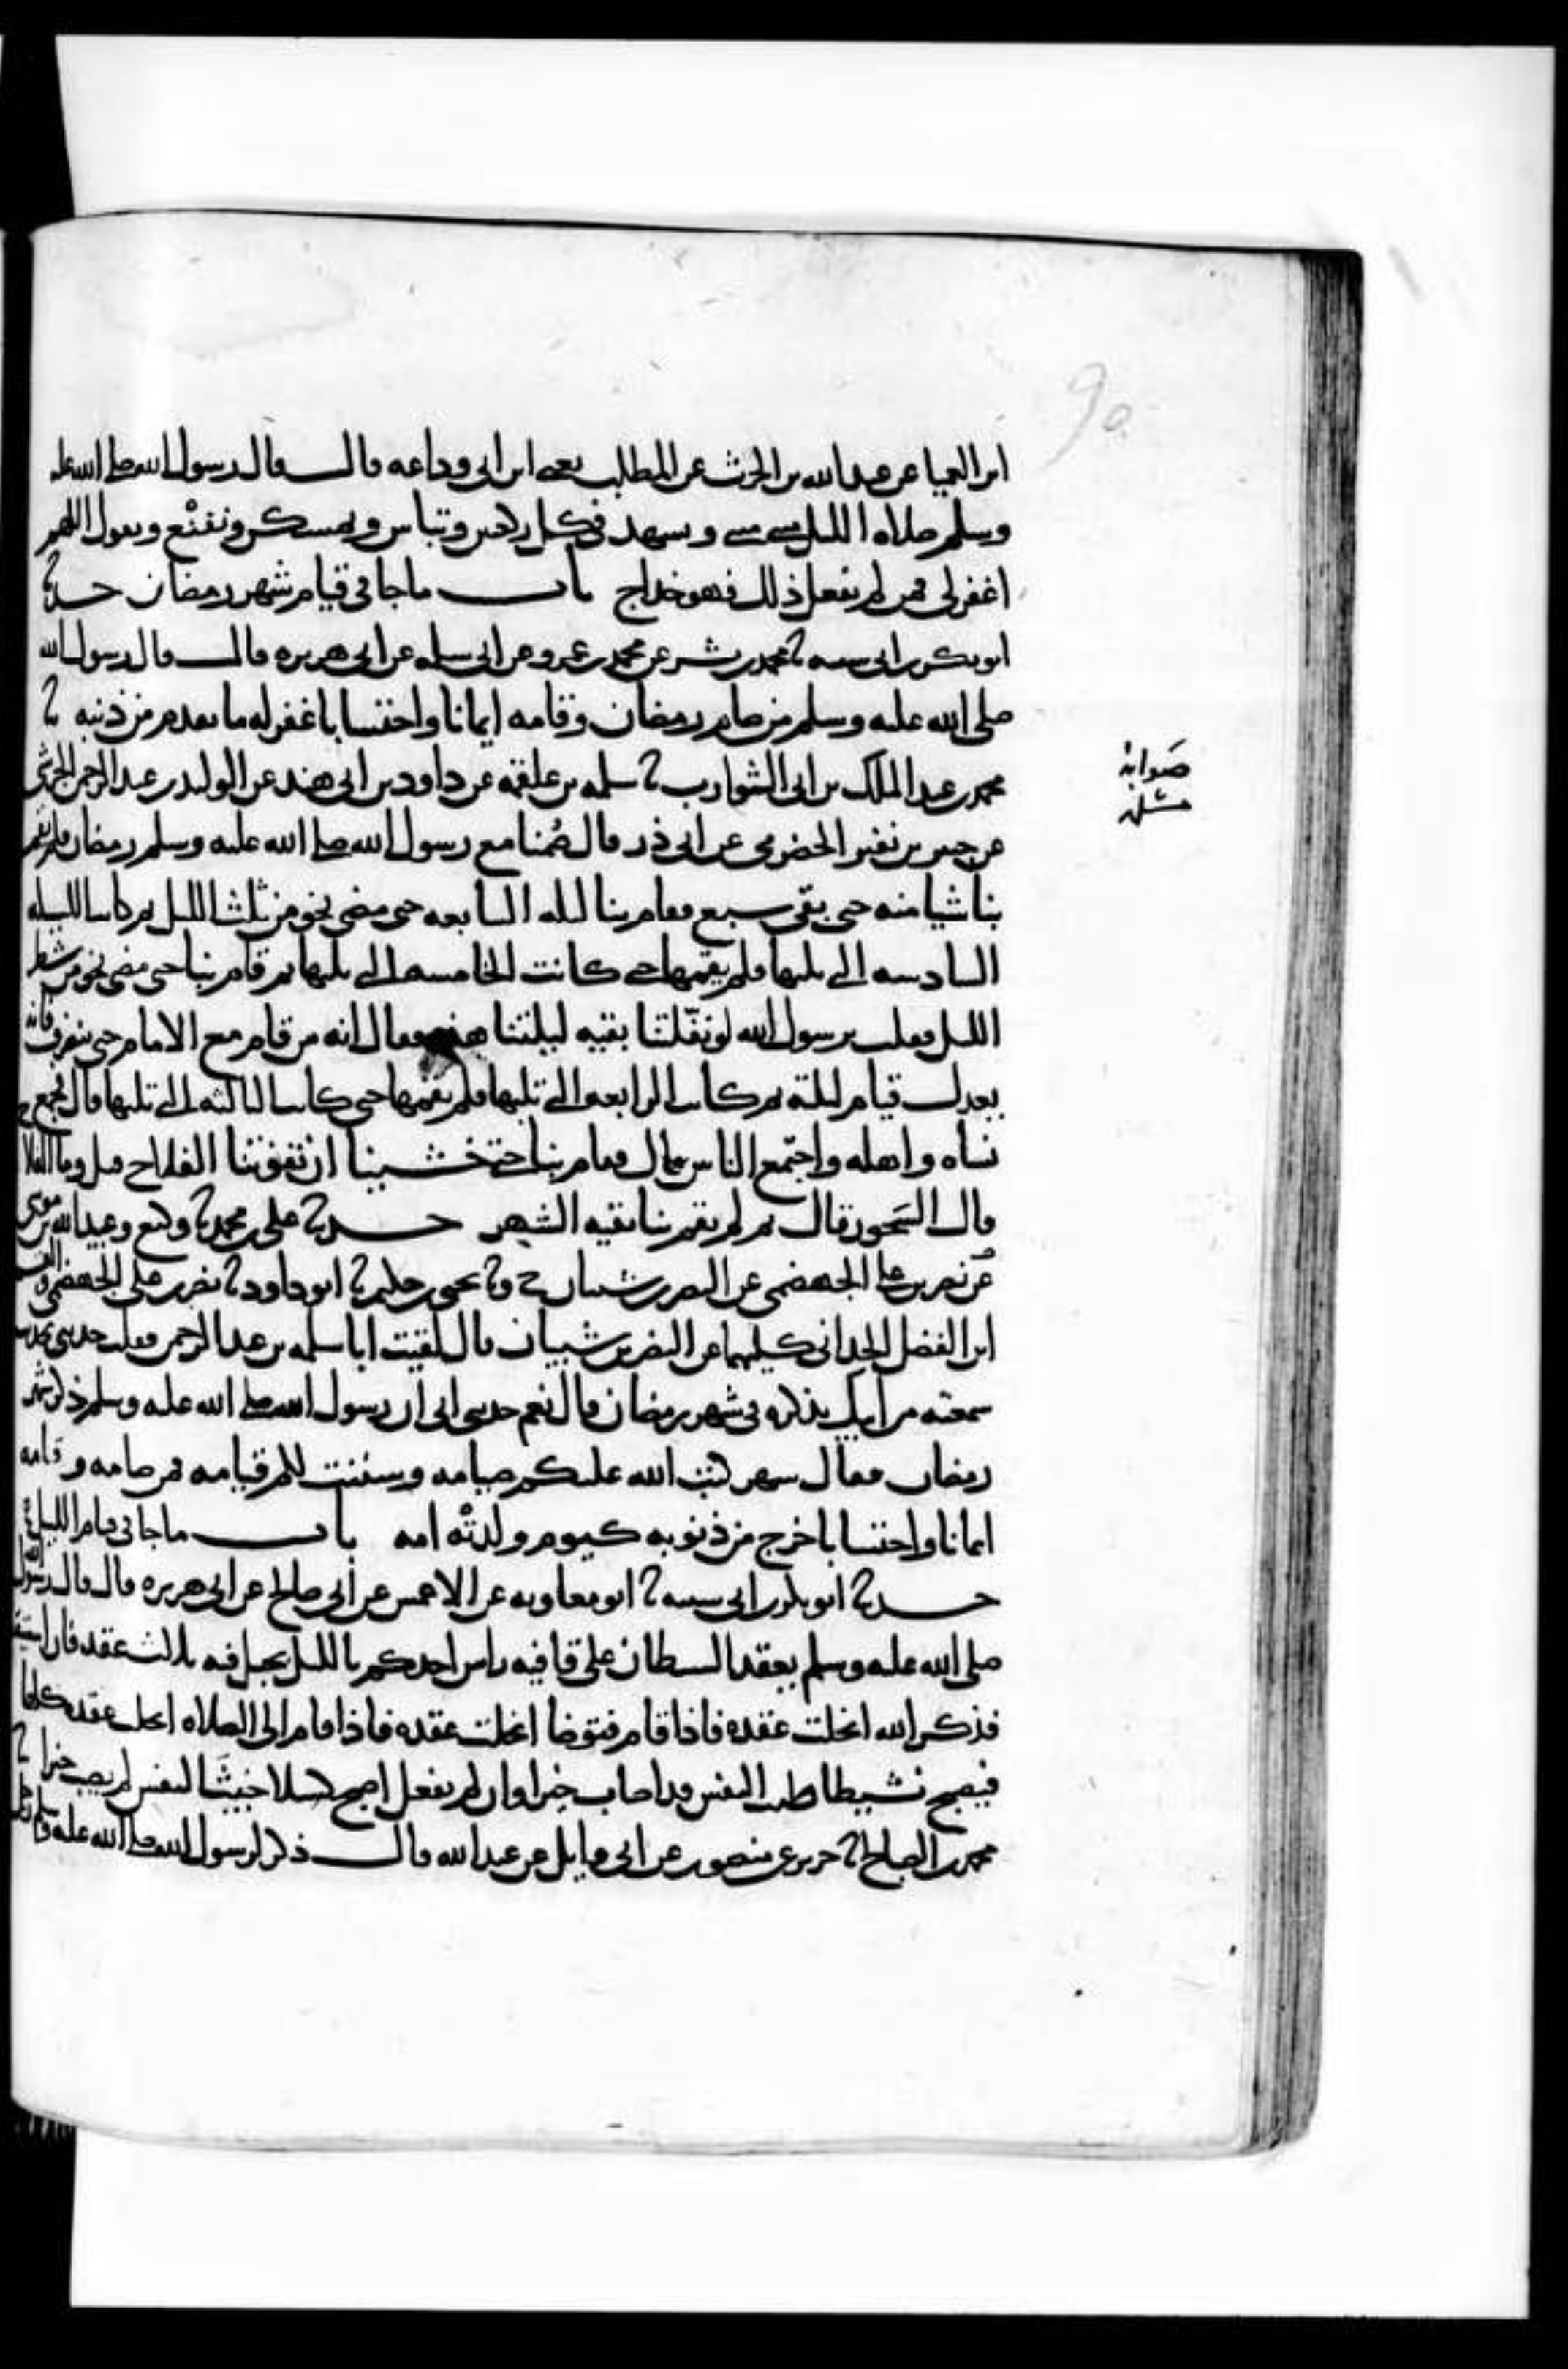 ابن العميا عن عبد الله بن الحرث عن المطلب يعني ابن ابي وداعه قال قال رسول الله صلى الله عليه
وسلم صلاه الليل مثنى مثنى وتشهد في كل ركعتين وتباس وتمسكن وتقنع وتقول اللهم
اغفر لي فمن لم يفعل ذلك فهو خداج باب ما جا في قيام شهر رمضان حدثنا
ابو بكر بن ابي شيبه ثنا محمد بن بشر عن محمد بن عمرو عن ابي سلمه عن ابي هريره قال قال رسول الله
صلى الله عليه وسلم من صام رمضان وقامه ايمانا واحتسابا غفر له ما تقدم من ذنبه ثنا
محمد بن عبد الملك بن ابي الشوارب ثنا سلمه بن علقمه عن داود بن ابي هند عن الوليد بن عبد الرحمن الجرشي
عن جبير بن نفير الحضرمي عن ابي ذر قال صُمنا مع رسول الله صلى الله عليه وسلم رمضان فلم يقم
بنا شيا منه حتى بقى سبع فقام بنا ليله السابعه حتى مضى نحو من ثلث الليل ثم كانت الليله
السادسه التي تليها فلم يقمها حتى كانت الخامسه التي تليها ثم قام بنا حتى مضى نحو من شطر
الليل فقلت يرسول الله لو نفّلتنا بقيه ليلتنا هذه فقال انه من قام مع الامام حتى ينصرف فانه
يعدل قيام ليلة ثم كانت الرابعه التي تليها فلم يقمها حتى كانت الثالثه التي تليها قال فجمع
نساه واهله واجتمع الناس قال فقام بنا حتى خشينا ان تفوتنا الفلاح قيل وما الفلاح
قال السَحور قال ثم لم يقم بنا بقيه الشهر حدثنا علي بن محمد ثنا وكيع وعبيد الله بن موسى
عن نصر بن علي الجهضمي عن النضر بن شيبان ح وثنا يحيى بن حكيم ثنا ابو داود ثنا نصر بن علي الجهضمي والقسم
ابن الفضل الحداني كليهما عن النضر بن شيبان قال لقيت ابا سلمه بن عبد الرحمن فقلت حدثني بحديث
سمعته من ابيك يذكره في شهر رمضان قال نعم حدثني ابي ان رسول الله صلى الله عليه وسلم ذكر شهر
رمضان فقال شهر كتب الله عليكم صيامه وسننت لكم قيامه فمن صامه وقامه
ايمانا واحتسابا خرج من ذنوبه كيوم ولدتْه امه باب ما جا في قيام الليل
حدثنا ابو بكر بن ابي شيبه ثنا ابو معاويه عن الاعمش عن ابي صالح عن ابي هريره قال قال رسول الله
صلى الله عليه وسلم يعقد الشيطان على قافيه راس احدكم بالليل بحبل فيه ثلاث عقد فان استيقظ
فذكر الله انحلت عقده فاذا قام فتوضا انحلت عقده فاذا قام الى الصلاه انحلت عقده كلها
فيصبح نشيطا طيب النفس قد اصاب خيرا وان لم يفعل اصبح كسلا خبيثَ النفس لم يصب خيرا ثنا
محمد بن الصباح ثنا جرير عن منصور عن ابي وايل عن عبد الله قال ذكر لرسول الله صلى الله عليه وسلم رجل
صَوابه
مسلمه
90